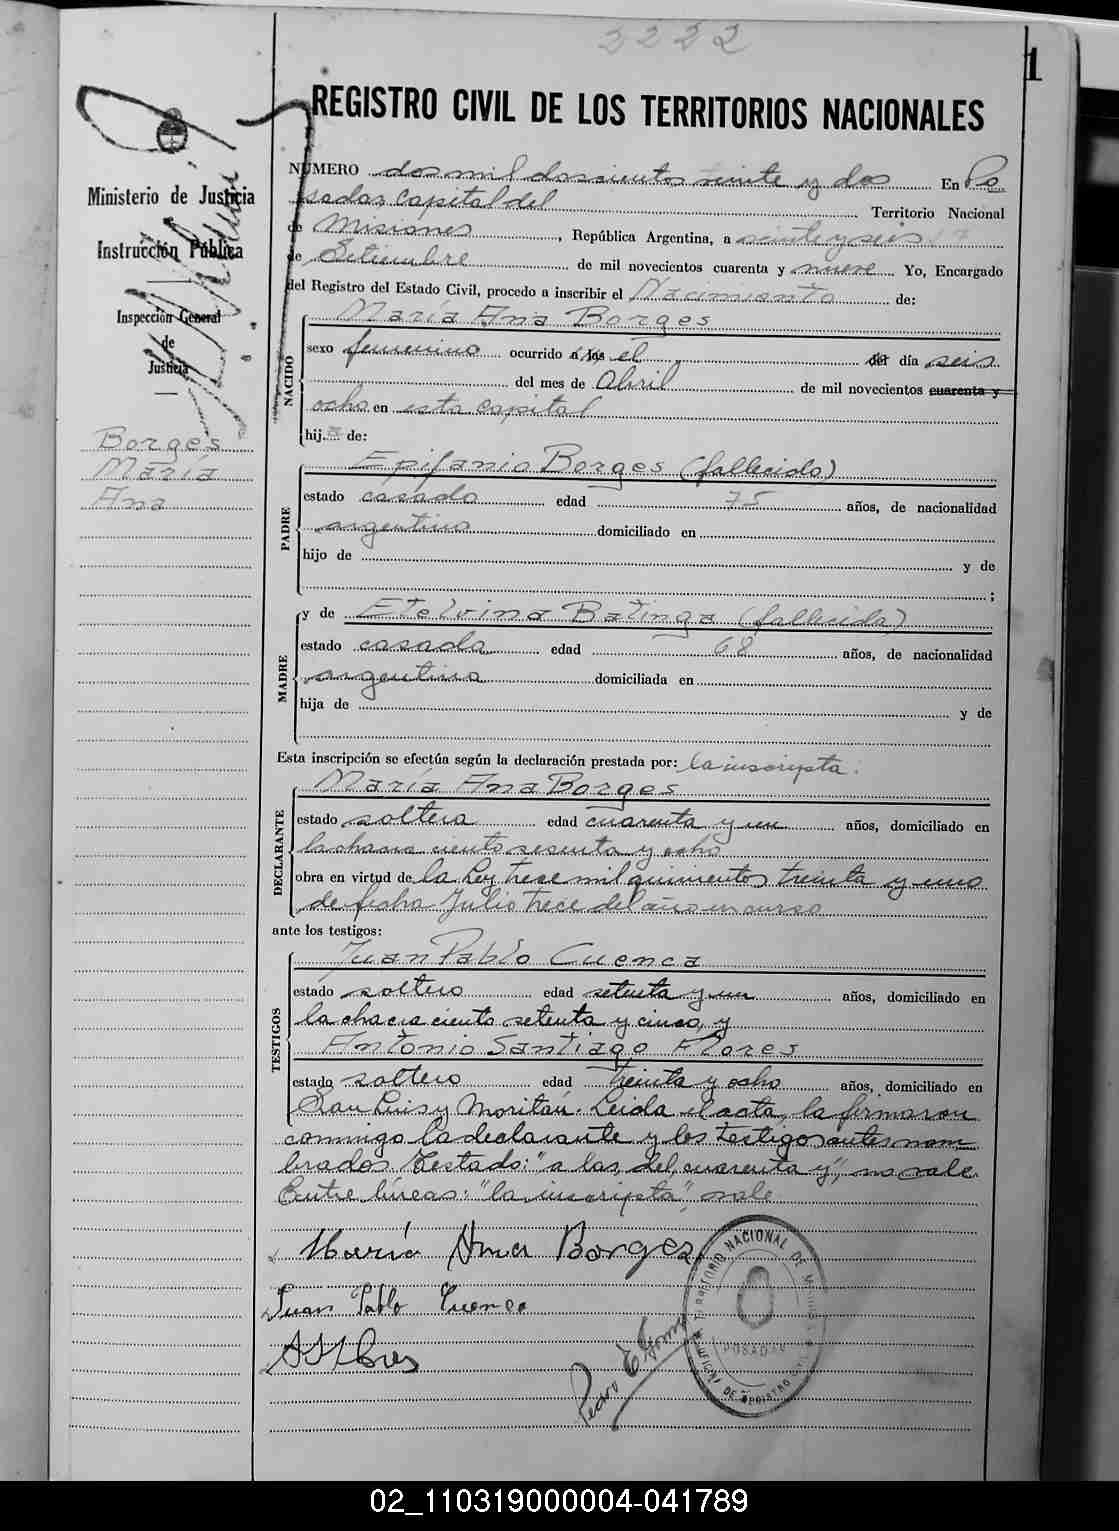 2222
1
REGISTRO CIVIL DE LOS TERRITORIOS NACIONALES
Ministerio de Justicia
e
Instrucción Pública
Inspección General
de
Justicia
Borges
María
Ana
NUMERO dos mil doscientos veinte y dos En Po
sadas Capital del Territorio Nacional
de Misiones, República Argentina, a veinte y seis
de Setiembre de mil novecientos cuarenta y nueve Yo, Encargado
del Registro del Estado Civil, procedo a inscribir el Nacimiento de:
NACIDO
María Ana Borges
sexo femenino ocurrido a las el del día seis
del mes de Abril de mil novecientos cuarenta y
ocho en esta capital
hija de:
PADRE
Epifanio Borges (fallecido)
estado casado edad 75 años, de nacionalidad
argentino domiciliado en
hijo de y de
;
MADRE
y de Etelvina Batinga (fallecida)
estado casada edad 68 años, de nacionalidad
argentina domiciliada en
hija de y de
Esta inscripción se efectúa según la declaración prestada por: la inscripta.
DECLARANTE
María Ana Borges
estado soltera edad cuarenta y un años, domiciliado en
la chacra ciento sesenta y ocho
obra en virtud de la Ley trece mil quinientos treinta y uno
de fecha Julio trece del año en curso
ante los testigos:
TESTIGOS
Juan Pablo Cuenca
estado soltero edad setenta y un años, domiciliado en
la chacra ciento setenta y cinco, y
Antonio Santiago Flores
estado soltero edad treinta y ocho años, domiciliado en
San Luis y Moritán. Leida el acta, la firmaron
conmigo la declarante y los testigos antes nom
brados. Testado: "a las, del, cuarenta y", no vale.
Entre líneas: "la inscripta", vale
María Ana Borges
Juan Pablo Cuenca
TERRITORIO NACIONAL DE MISIONES
POSADAS
02_110319000004-041789